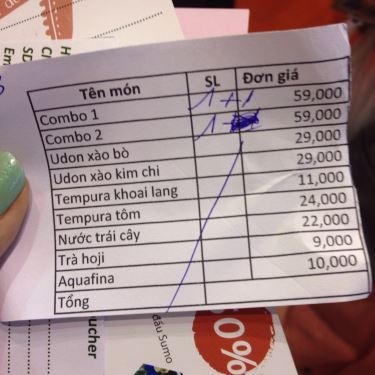 Tên món SL Đơn giá
Combo 1 1 + 1 59,000
Combo 2 1 59,000
Udon xào bò 29,000
Udon xào kim chi 29,000
Tempura khoai lang 11,000
Tempura tôm 24,000
Nước trái cây 22,000
Trà hoji 9,000
Aquafina 10,000
Tổng
đấu Sumo
50%
ucher